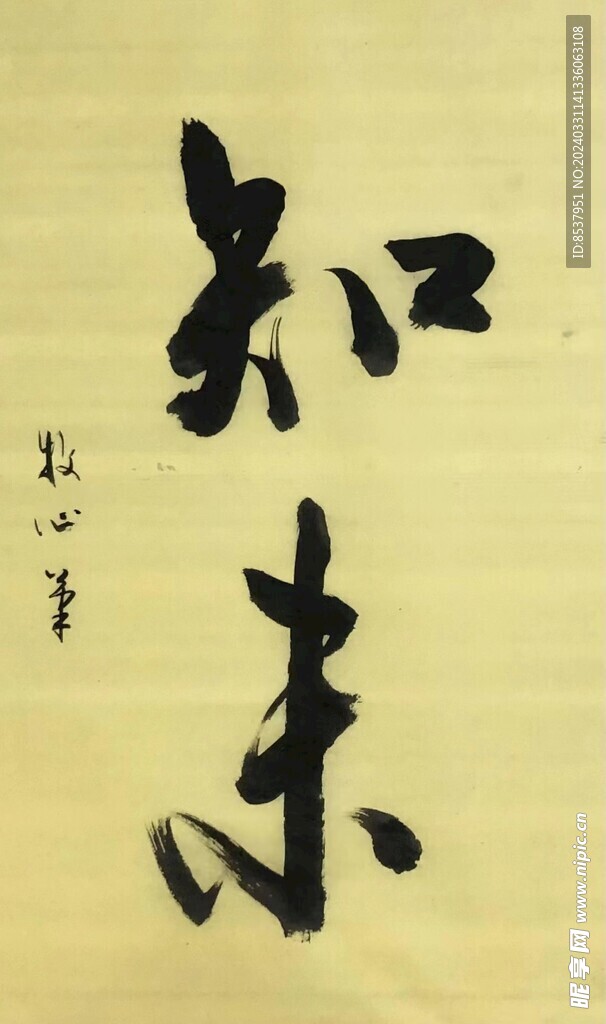 知未
牧心筆
ID:8537951 NO:20240331141336063108
昵享网 www.nipic.cn